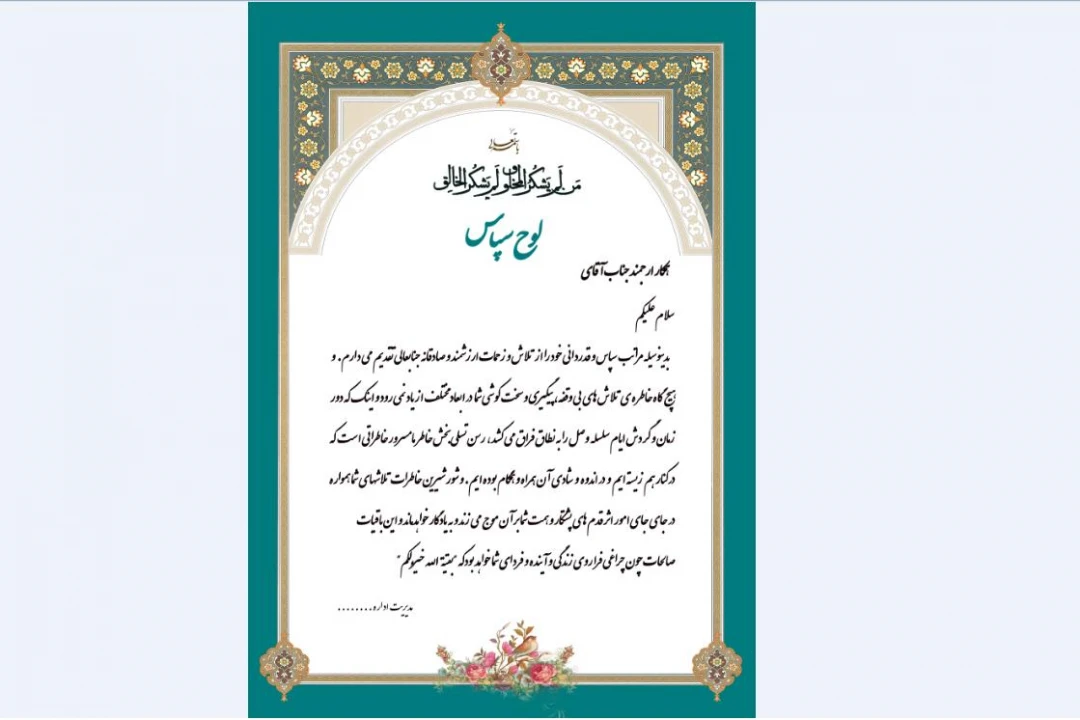 باسمه تعالی
مَن لَم یَشکُر المَخلوق لَم یَشکُر الخالِق
لوح سپاس
همکار ارجمند جناب آقای
سلام علیکم
بدینوسیله مراتب سپاس و قدردانی خود را از تلاش و زحمات ارزشمند و صادقانه جنابعالی تقدیم می دارم. و
هیچ گاه خاطره ی تلاش های بی وقفه، پیگیری و سخت کوشی شما در ابعاد مختلف از یاد نمی رود و اینک که دور
زمان و گردش ایام سلسله وصل را به نطاق فراق می کشد، رسن تسلی بخش خاطر ما مسرور خاطراتی است که
در کنار هم زیسته ایم و در اندوه و شادی آن همراه و همگام بوده ایم. و شور شیرین خاطرات تلاشهای شما همواره
در جای جای امور اثر قدم های پشتکار و همت شما بر آن موج می زند و به یادگار خواهد ماند و این باقیات
صالحات چون چراغی فراروی زندگی و آینده و فردای شما خواهد بود که "بقیة الله خیر لکم"
مدیریت اداره........